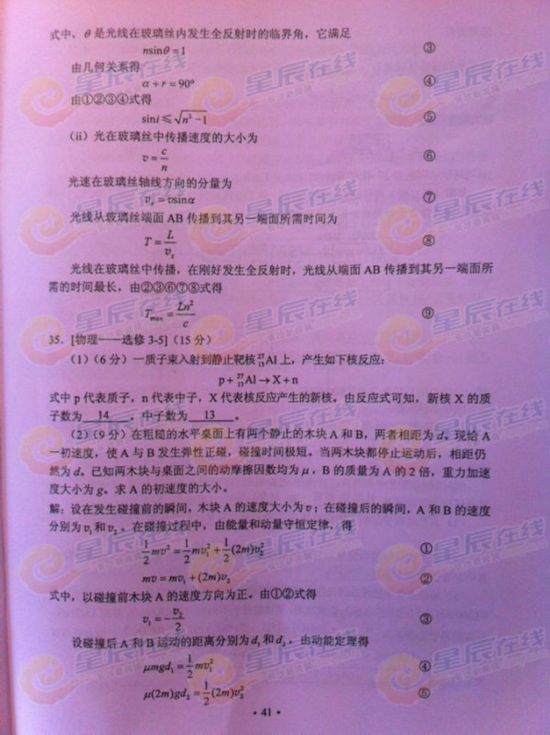 式中，θ是光线在玻璃丝内发生全反射时的临界角，它满足
nsinθ=1 ③
由几何关系得
α+r=90° ④
由①②③④式得
sini≤√(n²-1) ⑤
（ii）光在玻璃丝中传播速度的大小为
v=c/n ⑥
光速在玻璃丝轴线方向的分量为
v_z=vsinα ⑦
光线从玻璃丝端面AB传播到其另一端面所需时间为
T=L/v_z ⑧
光线在玻璃丝中传播，在刚好发生全反射时，光线从端面AB传播到其另一端面所
需的时间最长，由②③⑥⑦⑧式得
T_max=Ln²/c ⑨
35．[物理——选修3-5]（15分）
（1）（6分）一质子束入射到静止靶核²⁷₁₃Al上，产生如下核反应：
p+²⁷₁₃Al→X+n
式中p代表质子，n代表中子，X代表核反应产生的新核。由反应式可知，新核X的质
子数为 14 ，中子数为 13 。
（2）（9分）在粗糙的水平桌面上有两个静止的木块A和B，两者相距为d。现给A
一初速度，使A与B发生弹性正碰，碰撞时间极短。当两木块都停止运动后，相距仍
然为d。已知两木块与桌面之间的动摩擦因数均为μ，B的质量为A的2倍，重力加速
度大小为g。求A的初速度的大小。
解：设在发生碰撞前的瞬间，木块A的速度大小为v；在碰撞后的瞬间，A和B的速度
分别为v₁和v₂。在碰撞过程中，由能量和动量守恒定律，得
1/2mv²=1/2mv₁²+1/2(2m)v₂² ①
mv=mv₁+(2m)v₂ ②
式中，以碰撞前木块A的速度方向为正。由①②式得
v₁=-v₂/2 ③
设碰撞后A和B运动的距离分别为d₁和d₂，由动能定理得
μmgd₁=1/2mv₁² ④
μ(2m)gd₂=1/2(2m)v₂² ⑤
·41·
星辰在线